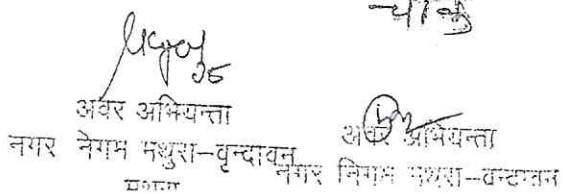 अवर अभियन्ता
नगर नेगम मथुरा-वृन्दावन
मथुरा
अवर अभियन्ता
नगर निगम मथुरा-वृन्दावन